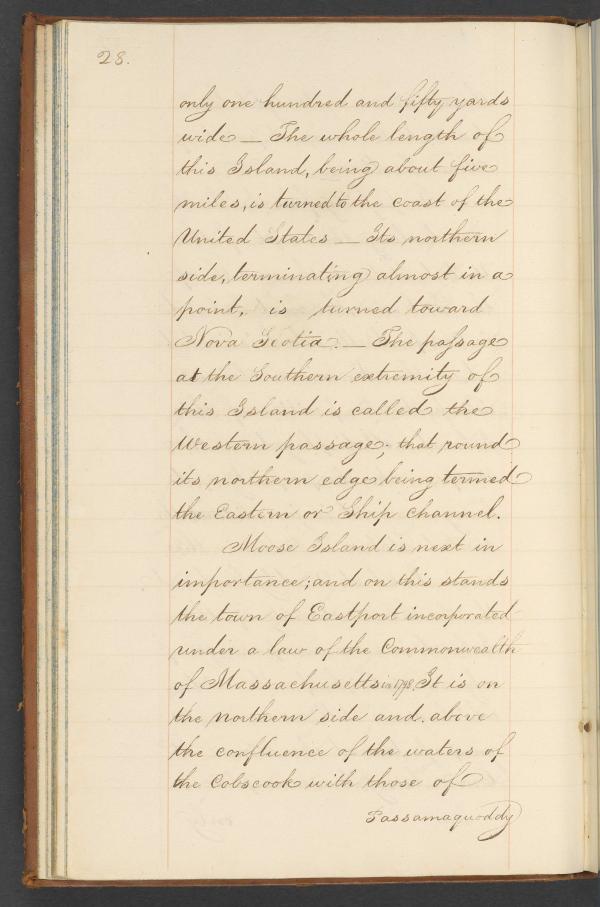 28.
only one hundred and fifty yards
wide — The whole length of
this Island, being about five
miles, is turned to the coast of the
United States — Its northern
side, terminating almost in a
point, is turned toward
Nova Scotia. — The paſsage
at the Southern extremity of
this Island is called the
Western passage; that round
its northern edge being termed
the Eastern or Ship channel.
Moose Island is next in
importance; and on this stands
the town of Eastport incorporated
under a law of the Commonwealth
of Massachusetts in 1798. It is on
the northern side and above
the confluence of the waters of
the Cobscook with those of
Passamaquoddy